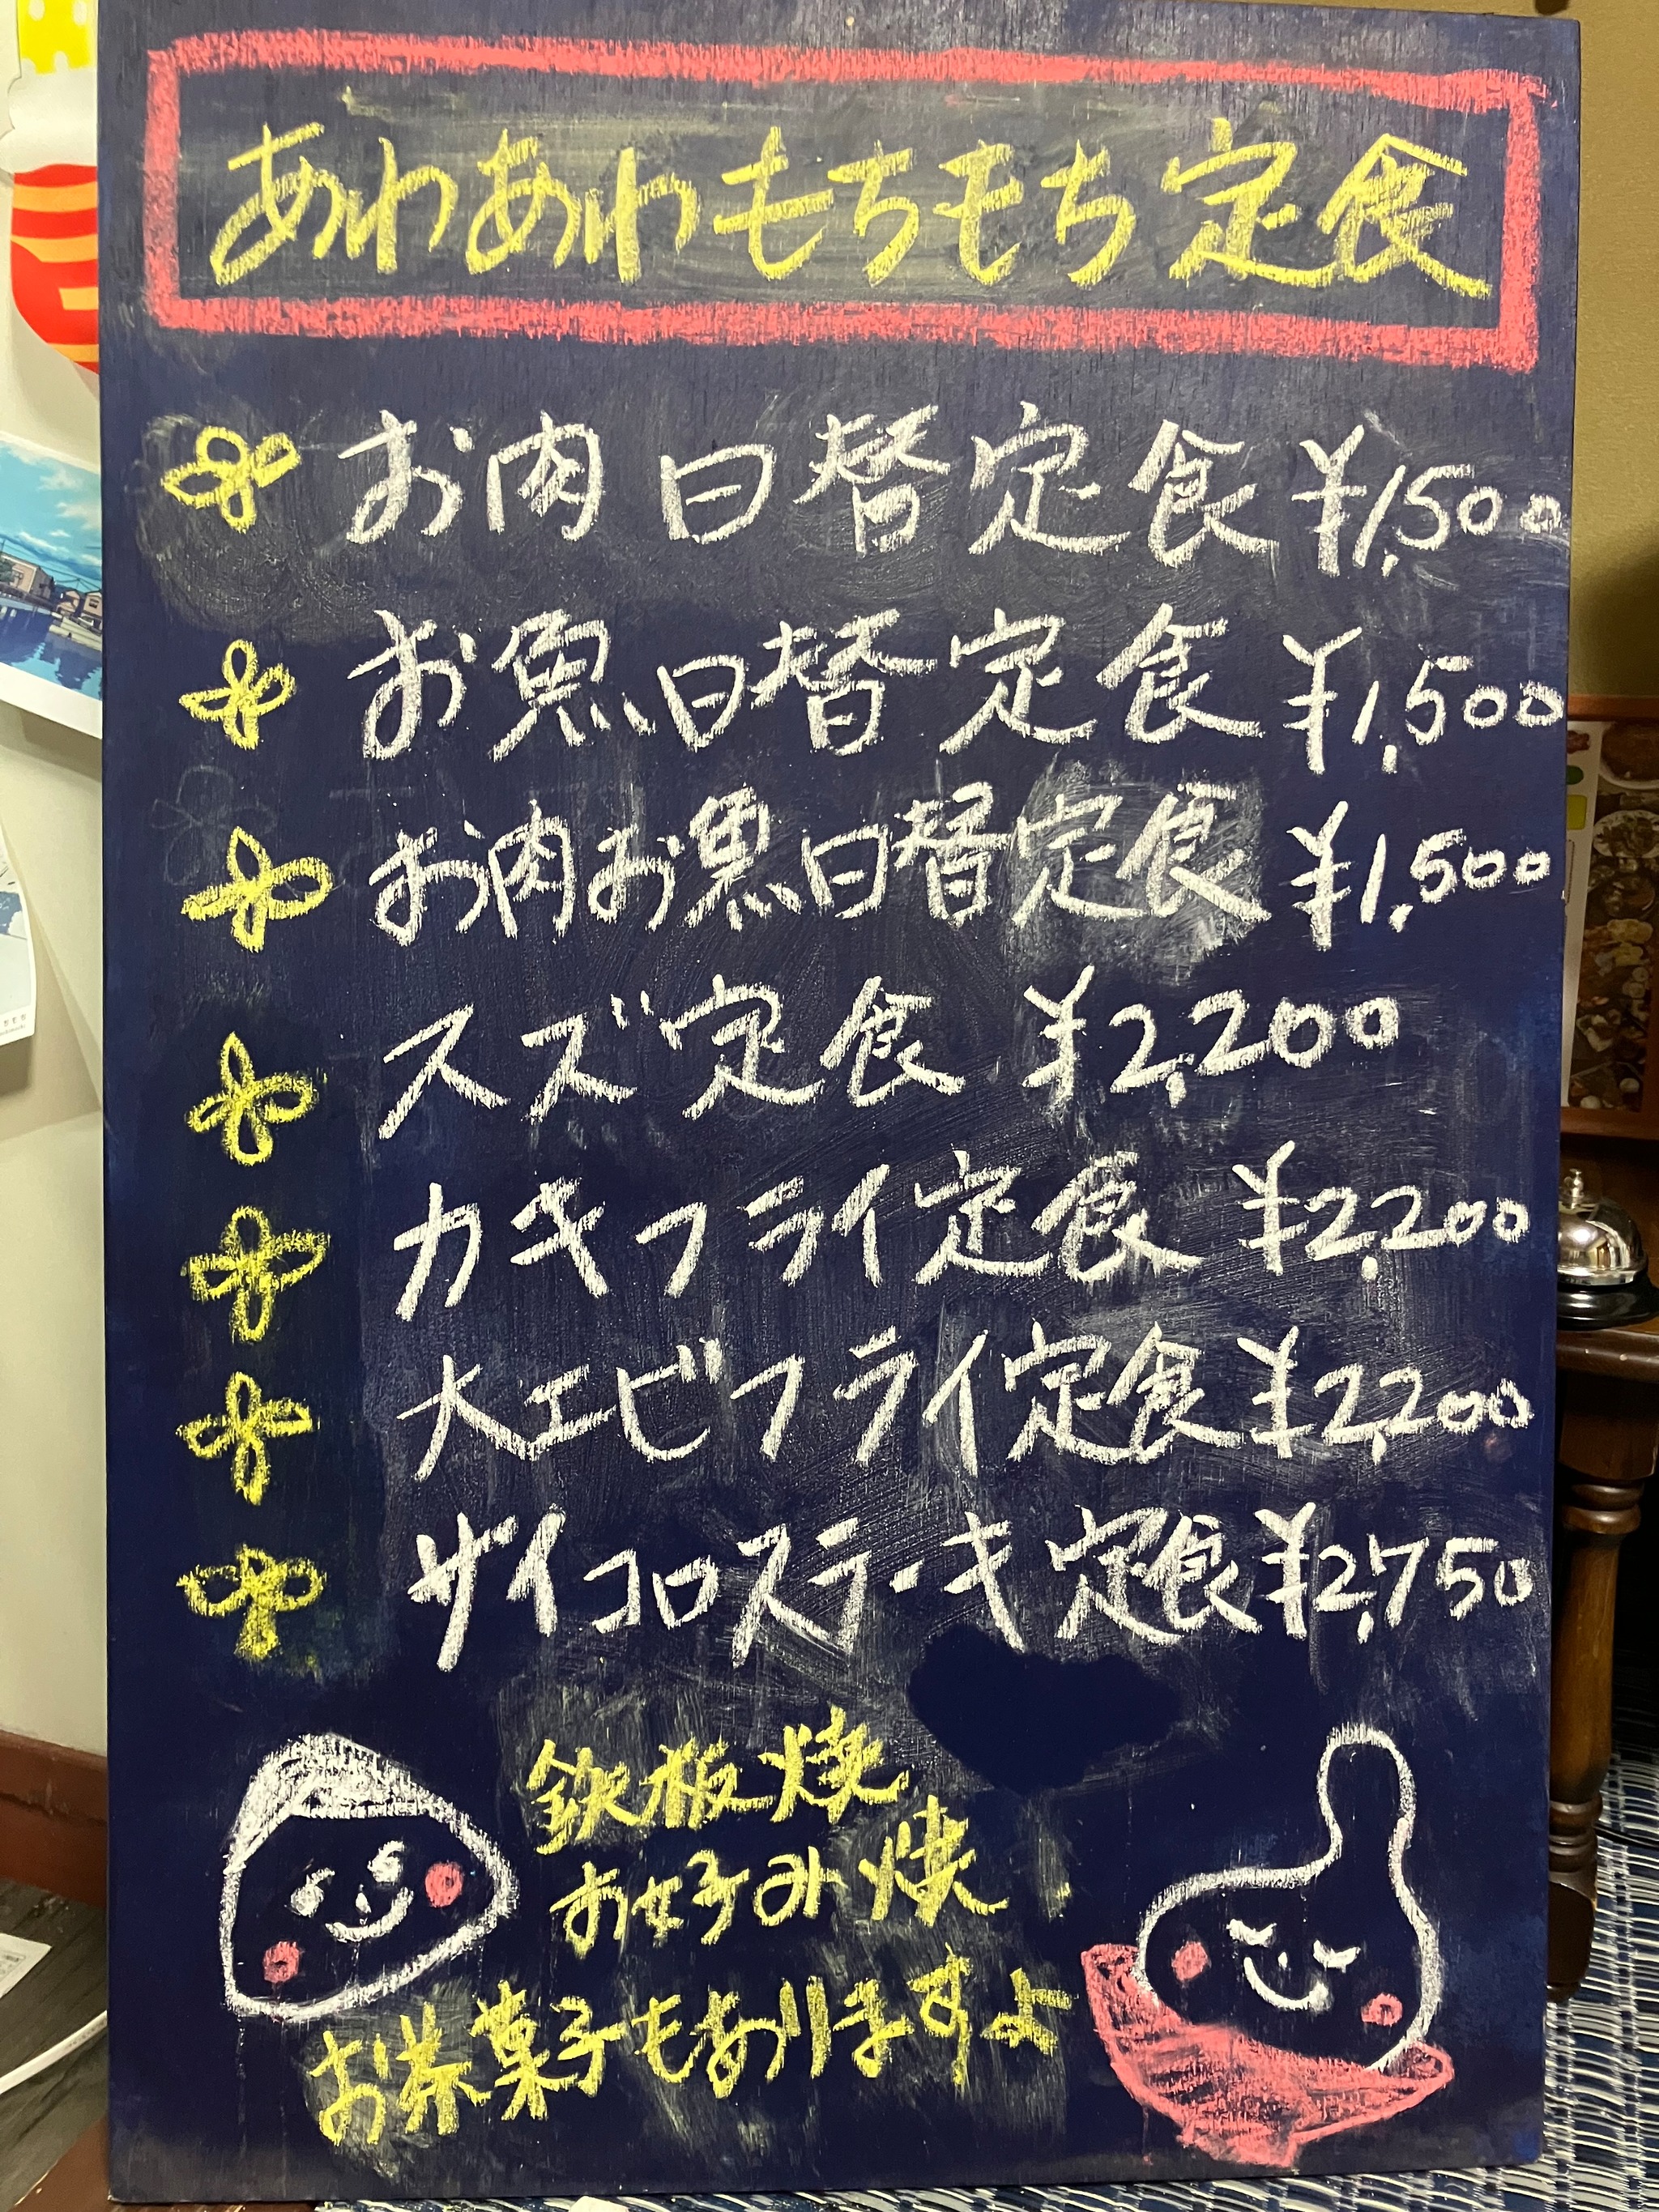 あわあわもちもち定食
お肉日替定食 ¥1,500
お魚日替定食 ¥1,500
お肉お魚日替定食 ¥1,500
スズ定食 ¥2,200
カキフライ定食 ¥2,200
大エビフライ定食 ¥2,200
サイコロステーキ定食 ¥2,750
鉄板焼
お好み焼
お茶菓子もありますよ